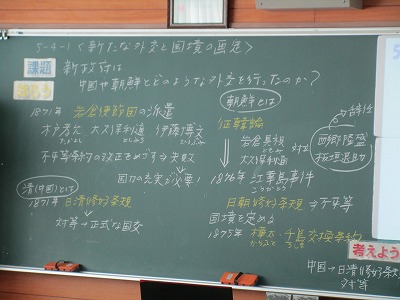 5-4-1 <新たな外交と国境の画定>
課題
新政府は
中国や朝鮮とどのような外交を行ったのか?
1871年 岩倉使節団の派遣
木戸孝允 大久保利通 伊藤博文
不平等条約の改正をめざす→失敗
国力の充実が必要!
清(中国)とは
1871年 日清修好条規
対等→正式な国交
朝鮮とは
征韓論
岩倉具視
大久保利通
対立
西郷隆盛
板垣退助
辞任
1876年 江華島事件
こうかとう
日朝修好条規→不平等
国境を定める
1875年 樺太・千島交換条約
からふと ちしま
考えよう
中国→日清修好条
対等